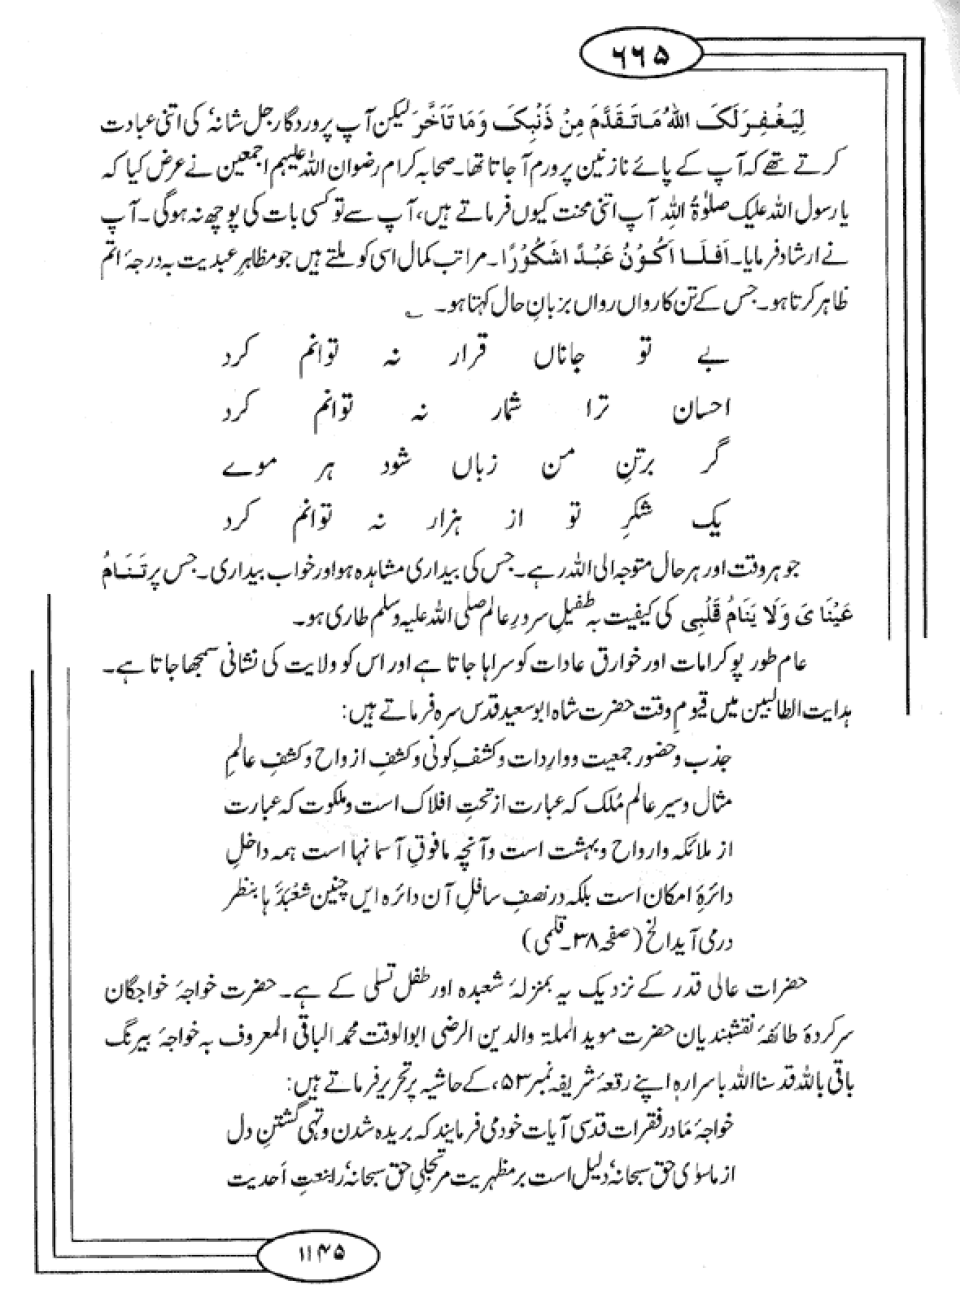 ۶۶۵
لِیَغْفِرَ لَکَ اللهُ مَا تَقَدَّمَ مِنْ ذَنْبِکَ وَمَا تَاَخَّرَ لیکن آپ پروردگار جل شانہٗ کی اتنی عبادت
کرتے تھے کہ آپ کے پائے نازنین پر ورم آ جاتا تھا۔ صحابہ کرام رضوان اللہ علیہم اجمعین نے عرض کیا کہ
یا رسول اللہ علیک صلوٰۃُ اللہِ آپ اتنی محنت کیوں فرماتے ہیں، آپ سے تو کسی بات کی پوچھ نہ ہوگی۔ آپ
نے ارشاد فرمایا۔ اَفَلَا اَکُوْنُ عَبْدًا شَکُوْرًا۔ مراتب کمال اسی کو ملتے ہیں جو مظاہرِ عبدیت بہ درجۂ اتم
ظاہر کرتا ہو۔ جس کے تن کا رواں رواں بزبانِ حال کہتا ہو۔ ؎
بے تو جاناں قرار نہ توانم کرد
احسان ترا شمار نہ توانم کرد
گر برتنِ من زباں شود ہر موے
یک شکرِ تو از ہزار نہ توانم کرد
جو ہر وقت اور ہر حال متوجہ الی اللہ رہے۔ جس کی بیداری مشاہدہ ہو اور خواب بیداری۔ جس پر تَنَامُ
عَیْنَایَ وَلَا یَنَامُ قَلْبِی کی کیفیت بہ طفیلِ سرورِ عالم صلی اللہ علیہ وسلم طاری ہو۔
عام طور پو کرامات اور خوارق عادات کو سراہا جاتا ہے اور اس کو ولایت کی نشانی سمجھا جاتا ہے۔
ہدایت الطالبین میں قیومِ وقت حضرت شاہ ابو سعید قدس سرہ فرماتے ہیں:
جذب و حضور جمعیت و واردات و کشفِ کونی و کشفِ ارواح و کشفِ عالمِ
مثال و سیر عالم مُلک کہ عبارت از تحتِ افلاک است و ملکوت کہ عبارت
از ملائکہ وارواح و بہشت است و آنچہ مافوقِ آسمانہا است ہمہ داخلِ
دائرۂ امکان است بلکہ در نصفِ سافلِ آن دائرہ ایں چنین شعبدَہا بنظر
درمی آید الخ (صفحہ ۳۸۔ قلمی)
حضرات عالی قدر کے نزدیک یہ بمنزلۂ شعبدہ اور طفل تسلی کے ہے۔ حضرت خواجۂ خواجگان
سر کردۂ طائفۂ نقشبندیان حضرت موید الملۃ والدین الرضی ابوالوقت محمد الباقی المعروف بہ خواجۂ بیرنگ
باقی باللہ قدسنا اللہ باسرارہ اپنے رقعۂ شریفہ نمبر ۵۳، کے حاشیہ پر تحریر فرماتے ہیں:
خواجۂ ما در فقرات قدسی آیات خود می فرمایند کہ بریدہ شدن و تہی گشتنِ دل
از ماسوٰی حق سبحانہٗ دلیل است بر مظہریت مر تجلیِ حق سبحانہٗ را بنعتِ اَحدیت
۱۱۴۵